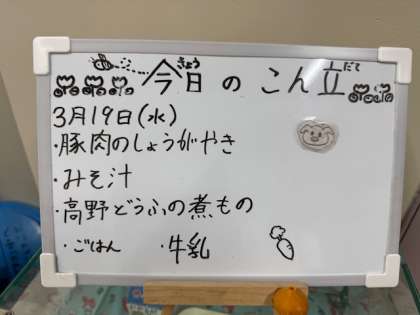 今日のこん立
きょう だて
3月19日(水)
・豚肉のしょうがやき
・みそ汁
・高野どうふの煮もの
・ごはん ・牛乳